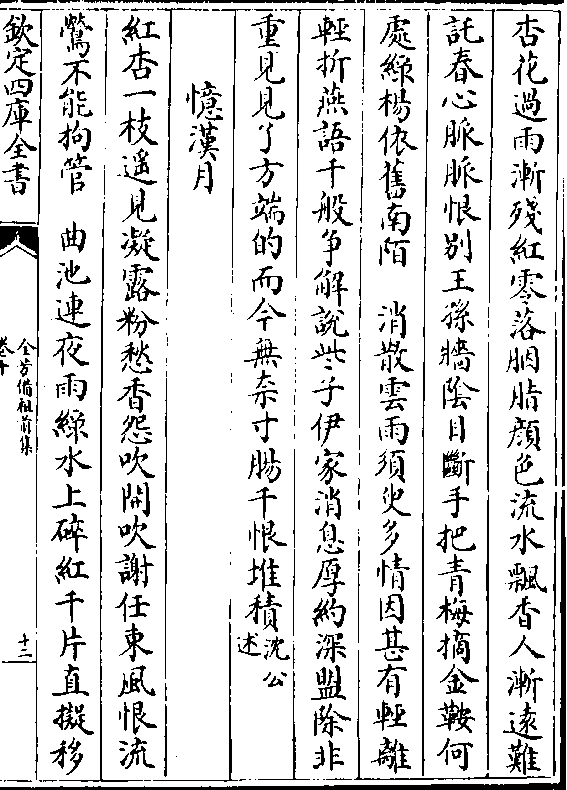 杏花過雨漸殘紅零落胭脂顔色流水飄香人漸遠難
託春心脈脈恨别王孫牆陰目斷手把青梅摘金鞍何
處綠楊依舊南陌　消散雲雨須臾多情因甚有輕離
輕折燕語千般争解說些子伊家消息厚約深盟除非
重見見了方端的而今無奈寸腸千恨堆積沈公述
憶漢月
紅杏一枝遥見凝露粉愁香怨吹開吹謝任東風恨流
鶯不能拘管　曲池連夜雨綠水上碎紅千片直擬移
欽定四庫全書
全芳備祖前集
卷十
十三